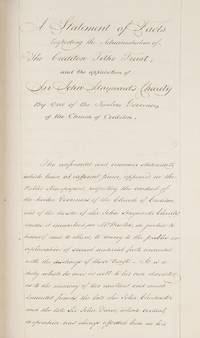 A Statement of Facts
Respecting the Administration of
The Crediton Tythe Trust,
and the application of
Sir John Hayward's Charity
By One of the Twelve Governors
of the Church of Crediton.
The unfounded and erroneous statements,
which have at different times, appeared in the
Public Newspapers, respecting the conduct of
the twelve Governors of the Church of Crediton,
and of the trustees of Sir John Hayward's Charity
makes it incumbent on in justice to
himself and to others, to convey to the public an
explanation of several material facts connected
with the discharge of those Trusts. It is a
duty which he owes as well to his own character,
as to the memory of two excellent and much
lamented friends the late
and the late Sir John Davie, whose virtues